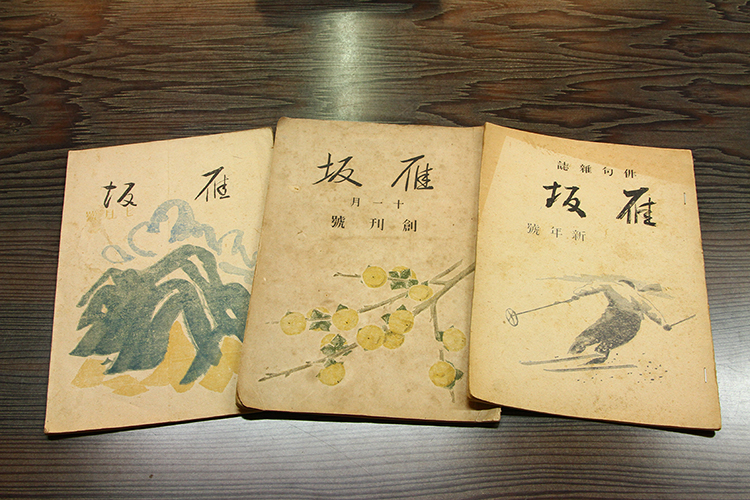 雁坂
雁坂
十一月
創刊號
俳句雜誌
雁坂
新年號